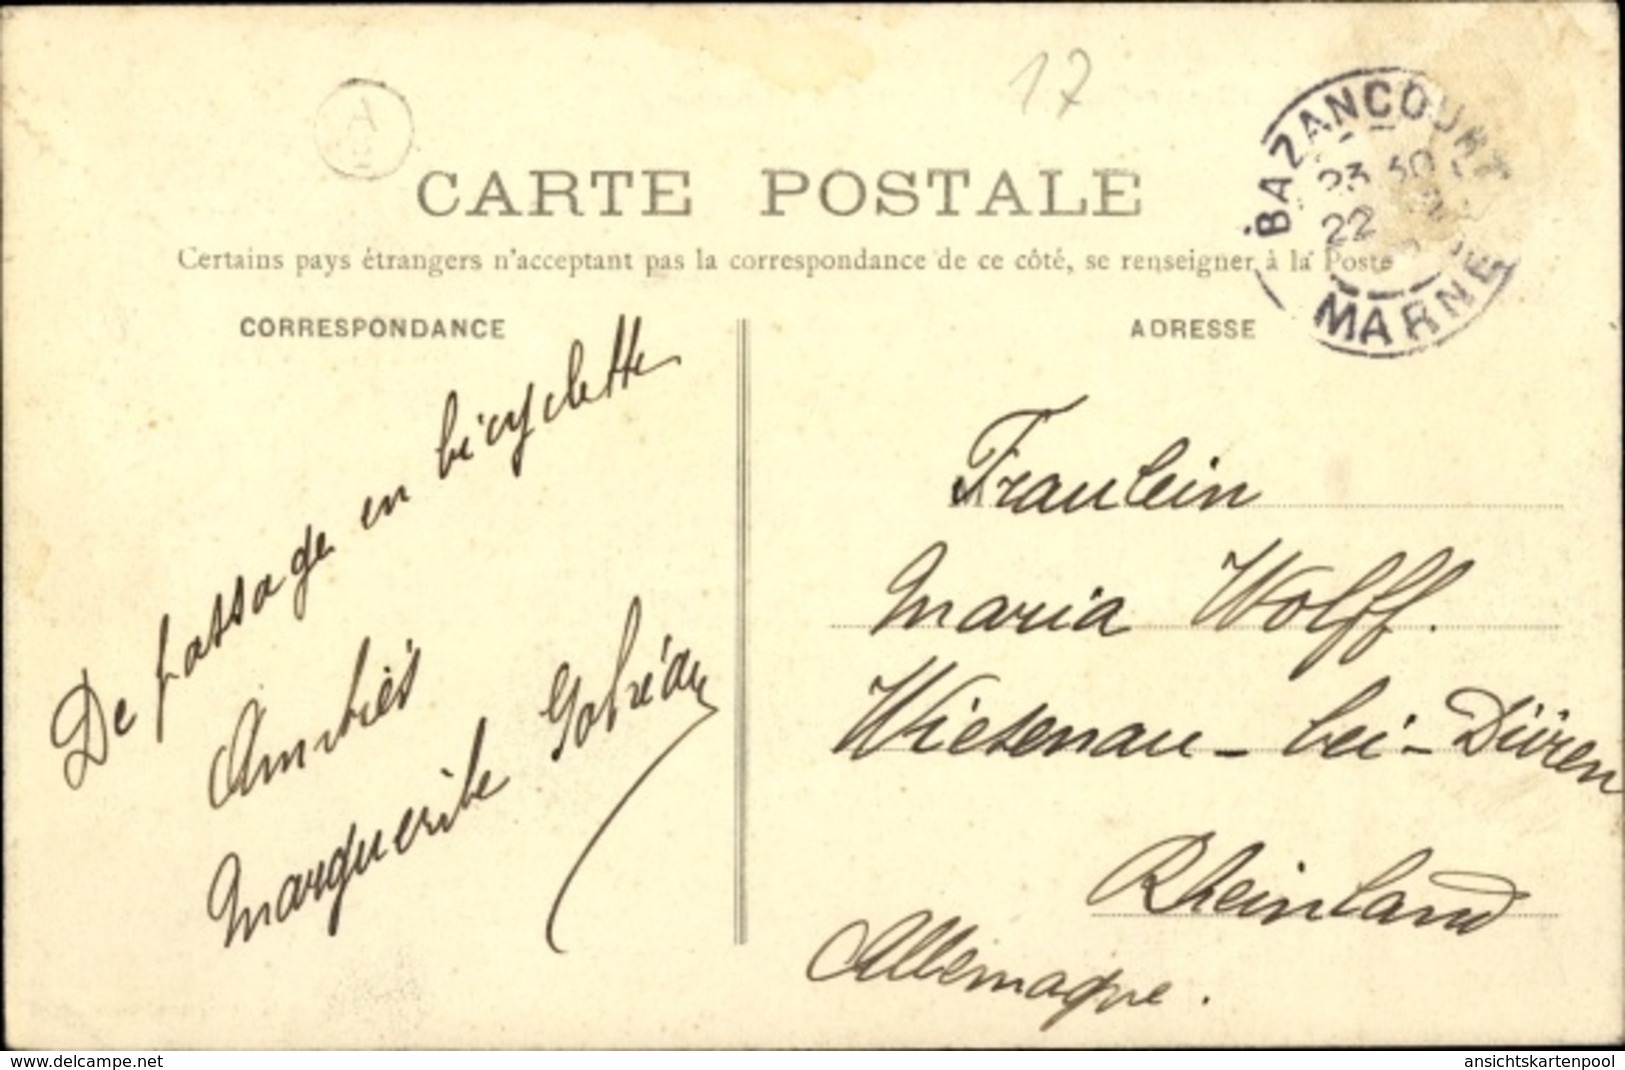 17
A
2
CARTE POSTALE
Certains pays étrangers n'acceptant pas la correspondance de ce côté, se renseigner à la Poste
BAZANCOURT
23 30
22
MARNE
CORRESPONDANCE
ADRESSE
De passage en bicyclette
Amitiés
Marguerite
Fraulein
Maria Wolff.
Wiesenau - bei - Düren
Rheinland
Allemagne.
www.delcampe.net
ansichtskartenpool